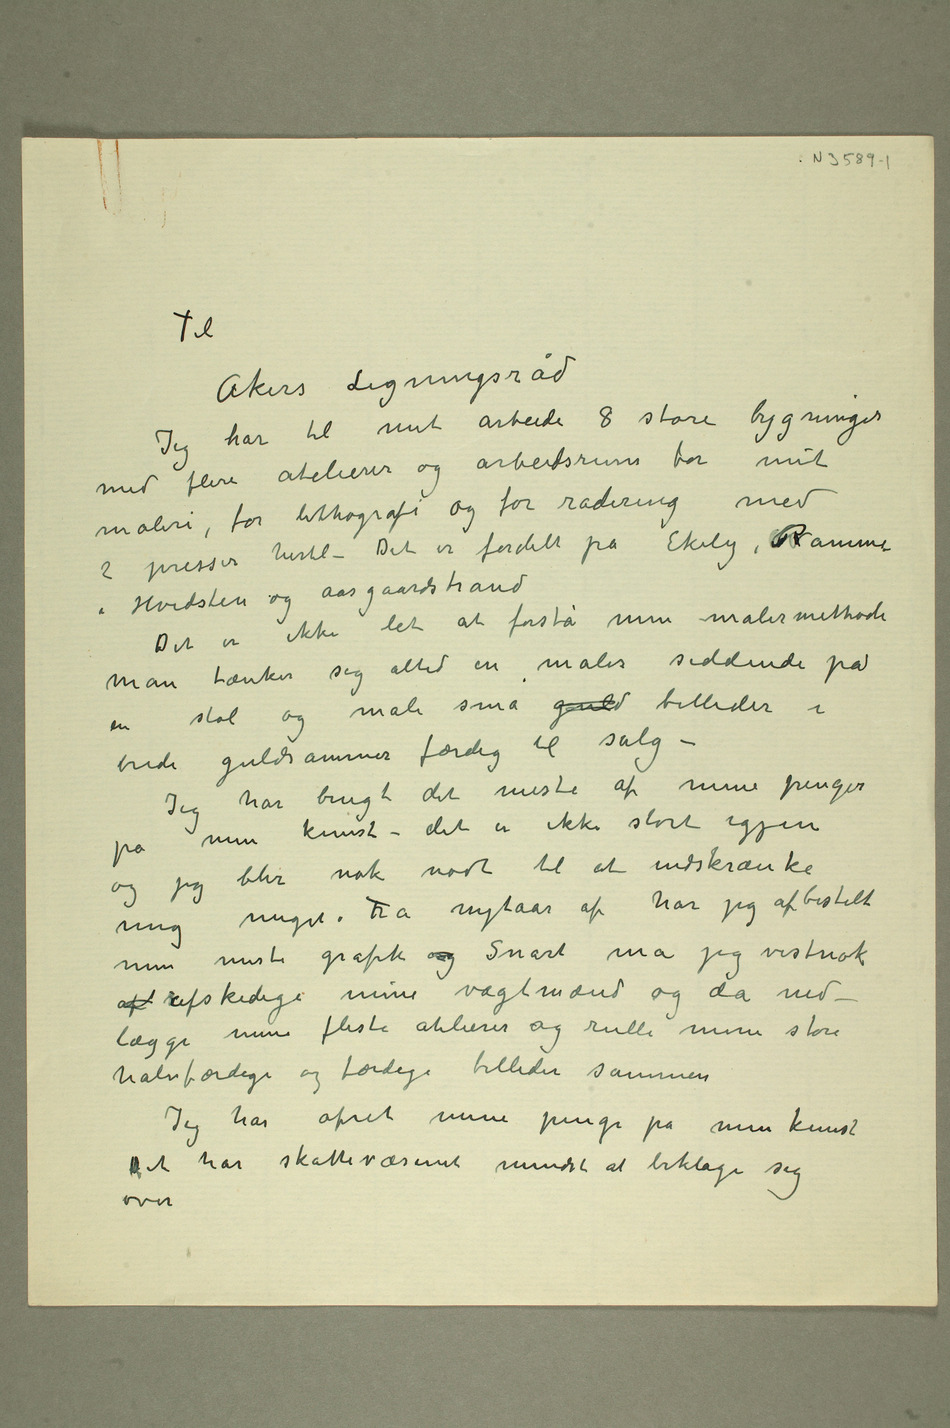 N 3589-1
Til
Akers Ligningsråd
Jeg har til mit arbeide 8 store bygninger
med flere atelierer og arbeidsrum for mit
maleri, for lithografi og for radering med
2 presser hertil – Det er fordelt på Ekely, Ramme
i Hvidsten og aasgaardstrand
Det er ikke let at forstå min malermethode
man tænker sig altid en maler siddende på
en stol og male små guld billeder i
brede guldrammer færdig til salg –
Jeg har brugt det meste af mine penger
på min kunst – det er ikke stort igjen
og jeg blir nok nødt til at indskrænke
mig meget. Fra nytaar af har jeg afbestilt
min meste grafik og Snart må jeg vistnok
aft afskedige mine vagtmænd og da ned–
lægge mine fleste atelierer og rulle mine store
halvfærdige og færdige billeder sammen
Jeg har ofret mine penge på min kunst
Det har skattevæsenet mindst at beklage sig
over